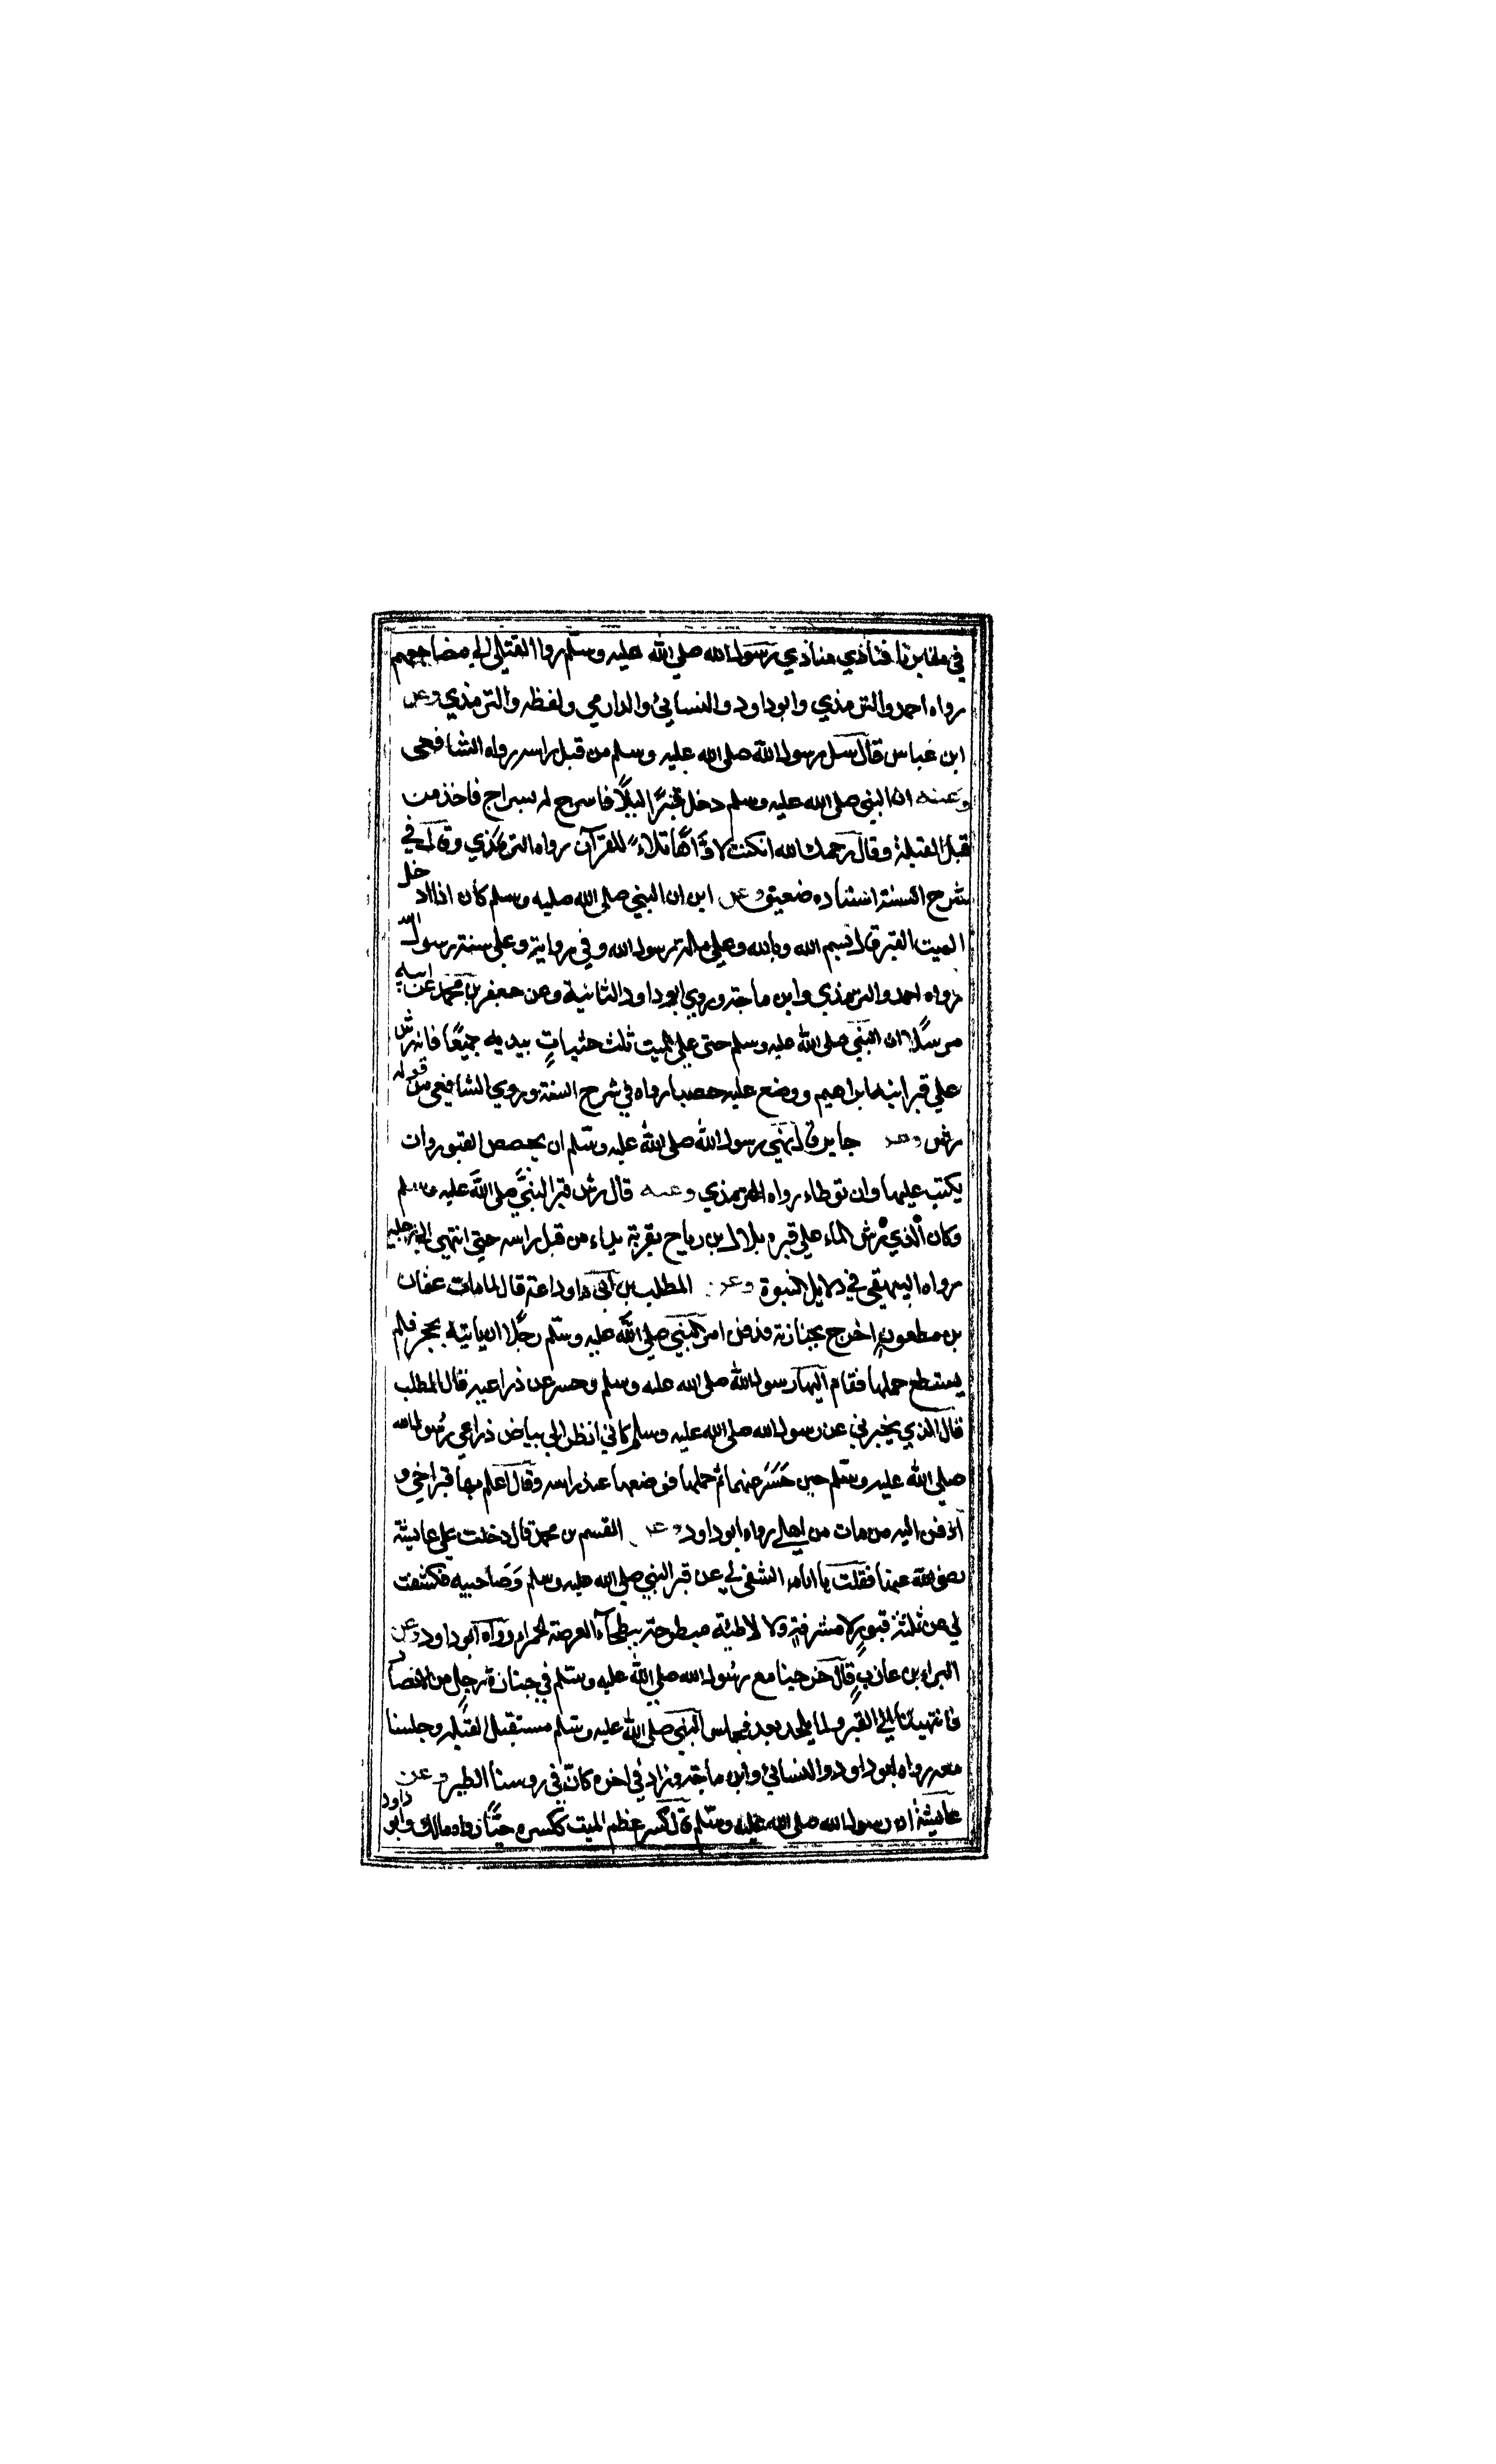 في مقابرنا فنادي منادي رسول الله صلي الله عليه وسلم ردوا القتيلي الي مضاجعهم
رواه احمد والترمذي وابو داود والنسايئ والدارمي ولفظه والترمذي وعن
ابن عباس قال سل رسول الله صلي الله عليه وسلم من قبل راسه رواه الشافعي
وعنه ان النبي صلي الله عليه وسلم دخل قبرًا ليلًا فاسرج له بسراج فاخذ من
قبل القبلة وقال رحمك الله ان كنت لاوّاهًا تلاءً للقرآن رواه الترمذي وقال في
شرح السنة اسناده ضعيف وعن ابن ان النبي صلي الله عليه وسلم كان اذا ادخل
الميت القبر قال بسم الله وبالله وعلي ملة رسول الله وفي رواية وعلي سنة رسول الله
رواه احمد والترمذي وابن ماجة وروي ابو داود الثانية وعن جعفر بن محمد عن ابيه
مرسلًا ان النبي صلي الله عليه وسلم حثي علي الميت ثلث حثياتٍ بيديه جميعًا فانه رش
علي قبر ابنه ابراهيم ووضع عليه حصبا رواه في شرح السنة وروي الشافعي من قوله
رش وعن جابر قال نهي رسول الله صلي الله عليه وسلم ان يجصص القبور وان
يكتب عليها وان توطاء رواه الترمذي وعنه قال رش قبر النبي صلي الله عليه وسلم
وكان الذي رش الماء علي قبره بلال بن رباح بقربة بداء من قبل راسه حتي انتهي الي رجليه
رواه البيهقي في دلايل النبوة وعن المطلب بن ابي وداعة قال لما مات عثمان
بن مظعونٍ اخرج بجنازته فدفن امر النبي صلي الله عليه وسلم رجلًا ان ياتيه بحجر فلم
يستطع حملها فقام اليها رسول الله صلي الله عليه وسلم وحسر عن ذراعيه قال المطلب
قال الذي يخبرني عن رسول الله صلي الله عليه وسلم كاني انظر الي بياض ذراعي رسول الله
صلي الله عليه وسلم حين حَسَرَ عنهما ثم حملها فوضعها عند راسه وقال اعلم بها قبر اخي و
ادفن اليه من مات من اهلي رواه ابو داود وعن القسم بن محمد قال دخلت علي عايشة
رضي الله عنها فقلت يا اماه اكشفي لي عن قبر النبي صلي الله عليه وسلم وصاحبيه فكشفت
لي عن ثلثة قبورٍ لا مشرفةٍ ولا لاطئة مبطوحة ببطحاء العرصة الحمرا رواه ابو داود وعن
البراء بن عازبٍ قال خرجنا مع رسول الله صلي الله عليه وسلم في جنازة رجل من الانصار
فانتهينا الي القبر ولما يلحد بعد فجلس النبي صلي الله عليه وسلم مستقبل القبلة وجلسنا
معه رواه ابو داود والنسائي وابن ماجة وزاد في اخره كانّ في روسنا الطير وعن
عايشة ان رسول الله صلي الله عليه وسلم قال كسر عظم الميت ككسره حيًّا رواه مالك وابو داود